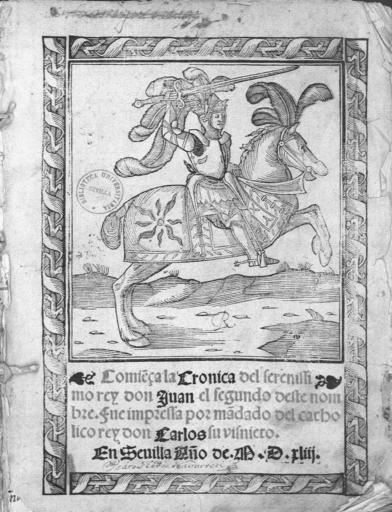 BIBLIOTECA UNIVERSITARIA
SEVILLA
Comiẽça la Cronica del serenissi
mo rey don Juan el segundo deste nom
bre. Fue impressa por mãdado del catho
lico rey don Carlos su visnieto.
En Sevilla Año de. M. D. xliij.